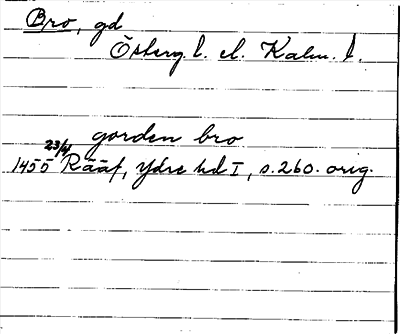 Bro, gd
Österg l. el. Kalm. l.
gorden bro
1455 23/4 Rääf, Ydre hd I, s. 260. orig.